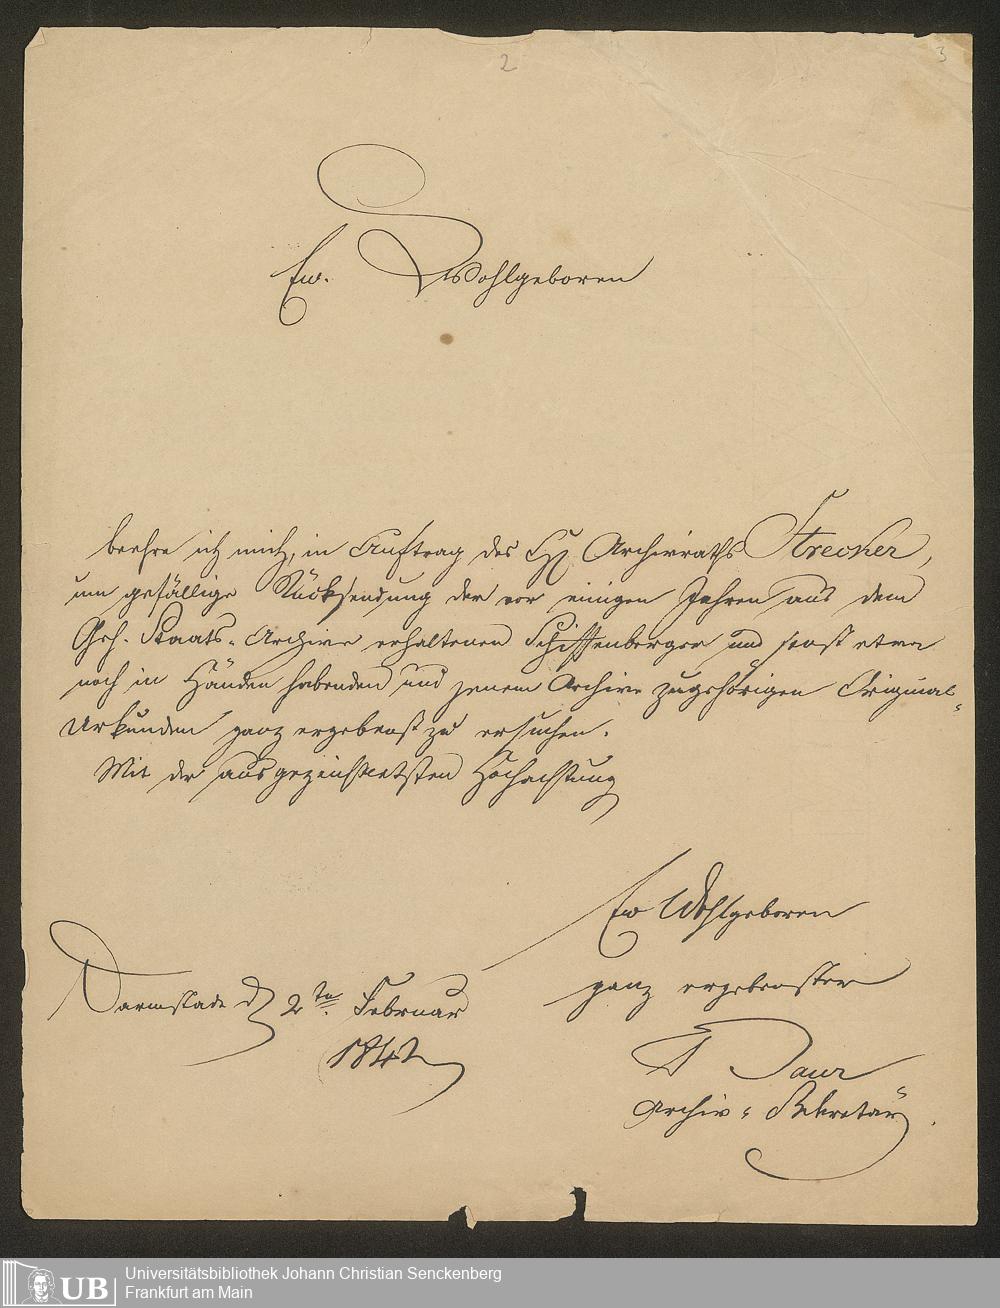 2
3
Ew. Wohlgeboren
beehre ich mich, in Auftrag des H. Archivraths Strecker,
um gefällige Rücksendung der vor einigen Jahren aus dem
Geh. Staats-Archive erhaltenen Schiffenberger und sonst etwa
noch in Händen habenden und jenem Archive zugehörigen Original-
Urkunden ganz ergebenst zu ersuchen.
Mit der ausgezeichnetsten Hochachtung
Ew Wohlgeboren
ganz ergebenster
Baur
Archiv-Sekretär.
Darmstadt d 2ten Februar
1842
UB
Universitätsbibliothek Johann Christian Senckenberg
Frankfurt am Main